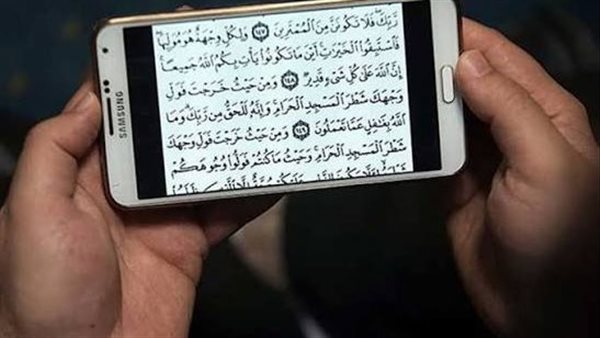 رَّبِّكَ فَلَا تَكُونَنَّ مِنَ الْمُمْتَرِينَ ١٤٧ وَلِكُلٍّ وِجْهَةٌ هُوَ مُوَلِّيهَا
فَاسْتَبِقُوا الْخَيْرَاتِ أَيْنَ مَا تَكُونُوا يَأْتِ بِكُمُ اللَّهُ جَمِيعًا
إِنَّ اللَّهَ عَلَىٰ كُلِّ شَيْءٍ قَدِيرٌ ١٤٨ وَمِنْ حَيْثُ خَرَجْتَ فَوَلِّ
وَجْهَكَ شَطْرَ الْمَسْجِدِ الْحَرَامِ وَإِنَّهُ لَلْحَقُّ مِن رَّبِّكَ وَمَا
اللَّهُ بِغَافِلٍ عَمَّا تَعْمَلُونَ ١٤٩ وَمِنْ حَيْثُ خَرَجْتَ فَوَلِّ وَجْهَكَ
شَطْرَ الْمَسْجِدِ الْحَرَامِ وَحَيْثُ مَا كُنتُمْ فَوَلُّوا وُجُوهَكُمْ
SAMSUNG